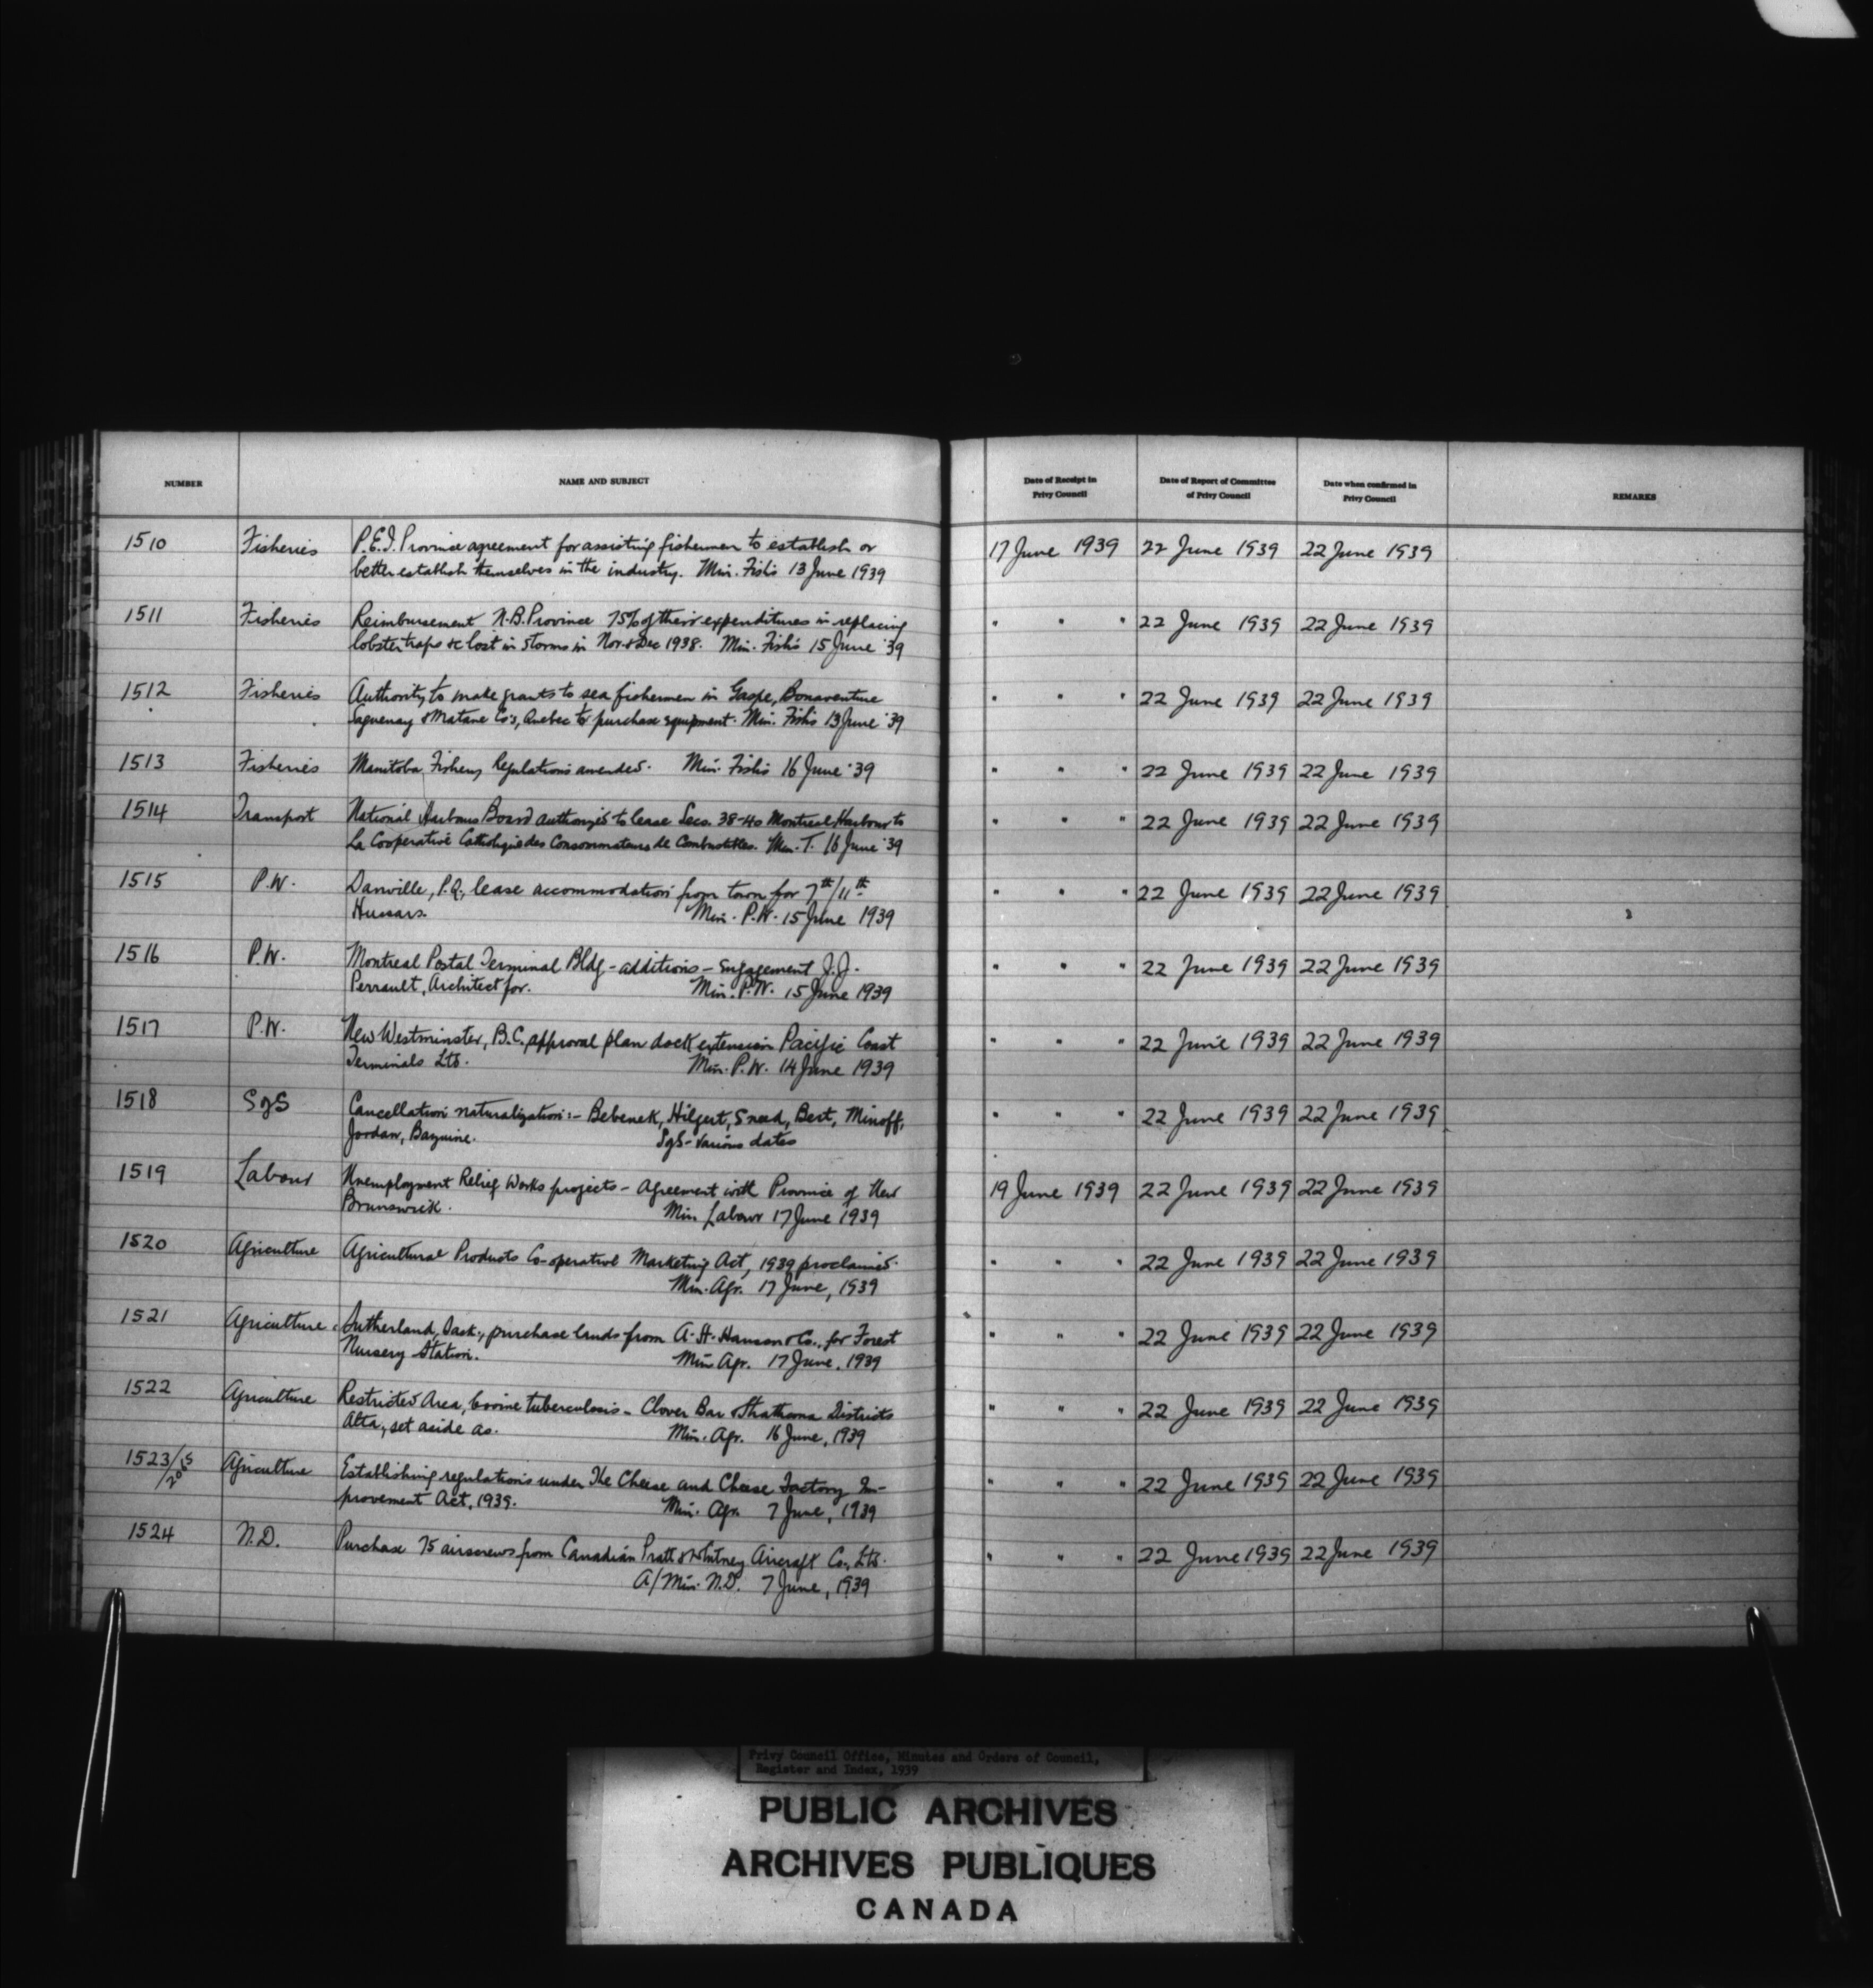 NUMBER NAME AND SUBJECT Date of Receipt in Privy Council Date of Report of Committee of Privy Council Date when confirmed in Privy Council REMARKS
1510 Fisheries P.E.I. Province agreement for assisting fishermen to establish or 17 June 1939 22 June 1939 22 June 1939
better establish themselves in the industry. Min. Fish's 13 June 1939
1511 Fisheries Reimbursement N.B. Province 75% of their expenditures in replacing " " " 22 June 1939 22 June 1939
lobster traps &c lost in storms in Nov. & Dec 1938. Min. Fish's 15 June '39
1512 Fisheries Authority to make grants to sea fishermen in Gaspe, Bonaventure " " " 22 June 1939 22 June 1939
Saguenay & Matane Co's, Quebec to purchase equipment. Min. Fish's 13 June '39
1513 Fisheries Manitoba Fishery Regulations amended. Min. Fish's 16 June '39 " " " 22 June 1939 22 June 1939
1514 Transport National Harbours Board authorized to lease Secs. 38-40 Montreal Harbour to " " " 22 June 1939 22 June 1939
La Cooperative Catholique des Consommateurs de Combustibles. Min. T. 16 June '39
1515 P.W. Danville, P.Q., lease accommodation from town for 7th/11th " " " 22 June 1939 22 June 1939
Hussars. Min. P.W. 15 June 1939
1516 P.W. Montreal Postal Terminal Bldg - additions - Engagement J.J. " " " 22 June 1939 22 June 1939
Perrault, Architect for. Min. P.W. 15 June 1939
1517 P.W. New Westminster, B.C. approval plan dock extension Pacific Coast " " " 22 June 1939 22 June 1939
Terminals Ltd. Min. P.W. 14 June 1939
1518 SofS Cancellation naturalization:- Bebenek, Hilgert, Sneed, Bert, Minoff, " " " 22 June 1939 22 June 1939
Jordan, SofS - various dates
1519 Labour Unemployment Relief Works projects - Agreement with Province of New 19 June 1939 22 June 1939 22 June 1939
Brunswick. Min Labour 17 June 1939
1520 Agriculture Agricultural Products Co-operative Marketing Act, 1939 proclaimed. " " " 22 June 1939 22 June 1939
Min. Agr. 17 June, 1939
1521 Agriculture Sutherland, Sask., purchase lands from A. H. Hanson & Co., for Forest " " " 22 June 1939 22 June 1939
Nursery Station. Min. Agr. 17 June, 1939
1522 Agriculture Restricted Area, bovine tuberculosis - Clover Bar & Strathcona Districts " " " 22 June 1939 22 June 1939
Alta, set aside as. Min. Agr. 16 June, 1939
1523/2065 Agriculture Establishing regulations under The Cheese and Cheese Factory Im- " " " 22 June 1939 22 June 1939
provement Act, 1939. Min. Agr. 7 June, 1939
1524 N.D. Purchase 75 airscrews from Canadian Pratt & Whitney Aircraft Co., Ltd. " " " 22 June 1939 22 June 1939
A/Min. N.D. 7 June, 1939
Privy Council Office, Minutes and Orders of Council,
Register and Index, 1939
PUBLIC ARCHIVES
ARCHIVES PUBLIQUES
CANADA